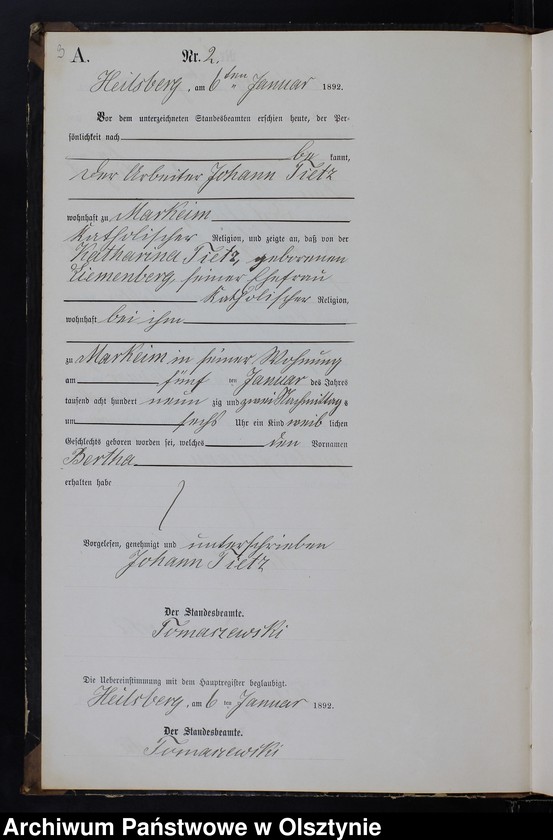 3 A. Nr. 2.
Heilsberg, am 6ten Januar 1892.
Vor dem unterzeichneten Standesbeamten erschien heute, der Per-
sönlichkeit nach
be kannt,
der Arbeiter Johann Tietz
wohnhaft zu Markeim
katholischer Religion, und zeigte an, daß von der
Katharina Tietz, geborenen
Liemenberg, seiner Ehefrau
katholischer Religion,
wohnhaft bei ihm
zu Markeim in seiner Wohnung
am fünf ten Januar des Jahres
tausend acht hundert neun zig und zwei Nachmittags
um sechs Uhr ein Kind weib lichen
Geschlechts geboren worden sei, welches den Vornamen
Bertha
erhalten habe
Vorgelesen, genehmigt und unterschrieben
Johann Tietz
Der Standesbeamte.
Tomaszewski
Die Uebereinstimmung mit dem Hauptregister beglaubigt.
Heilsberg, am 6 ten Januar 1892.
Der Standesbeamte.
Tomaszewski
Archiwum Państwowe w Olsztynie